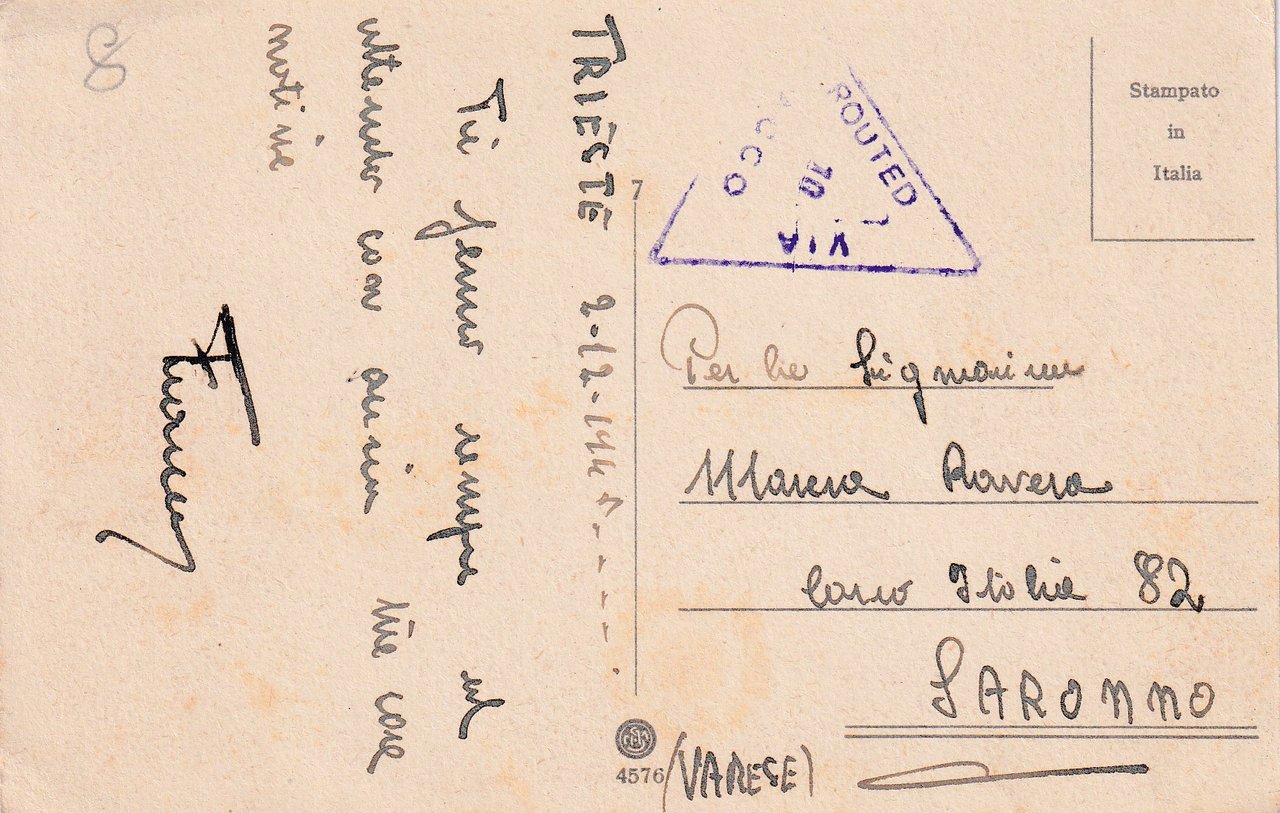 TRIESTE 2-12-194
Ti penso sempre ed
attendo con ansia tue care
notizie
ROUTED
VIA
10
Stampato
in
Italia
7
Per la Signorina
Ravera
Corso Italia 82
SARONNO
(VARESE)
4576